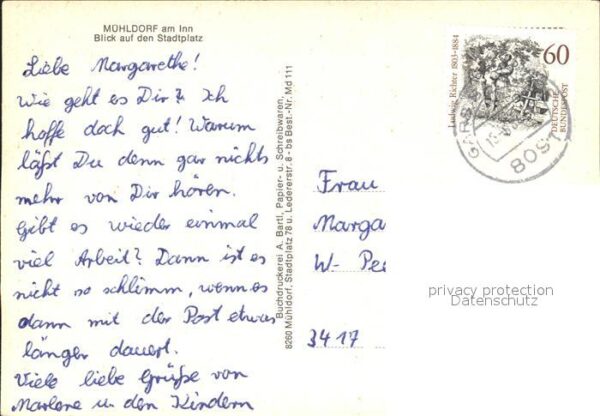 MÜHLDORF am Inn
Blick auf den Stadtplatz
Liebe Margarethe!
Wie geht es Dir? Ich
hoffe doch gut! Warum
läßt Du denn gar nichts
mehr von Dir hören.
Gibt es wieder einmal
viel Arbeit? Dann ist es
nicht so schlimm, wenn es
dann mit der Post etwas
länger dauert.
Viele liebe Grüße von
Marlene u. den Kindern
Buchdruckerei A. Bartl, Papier- u. Schreibwaren,
8260 Mühldorf, Stadtplatz 78 u. Ledererstr. 8 - bs Best.-Nr. Md 111
Ludwig Richter 1803-1884
60
DEUTSCHE
BUNDESPOST
GARS
8091
Frau
Marga
W- Pe
3417
privacy protection
Datenschutz